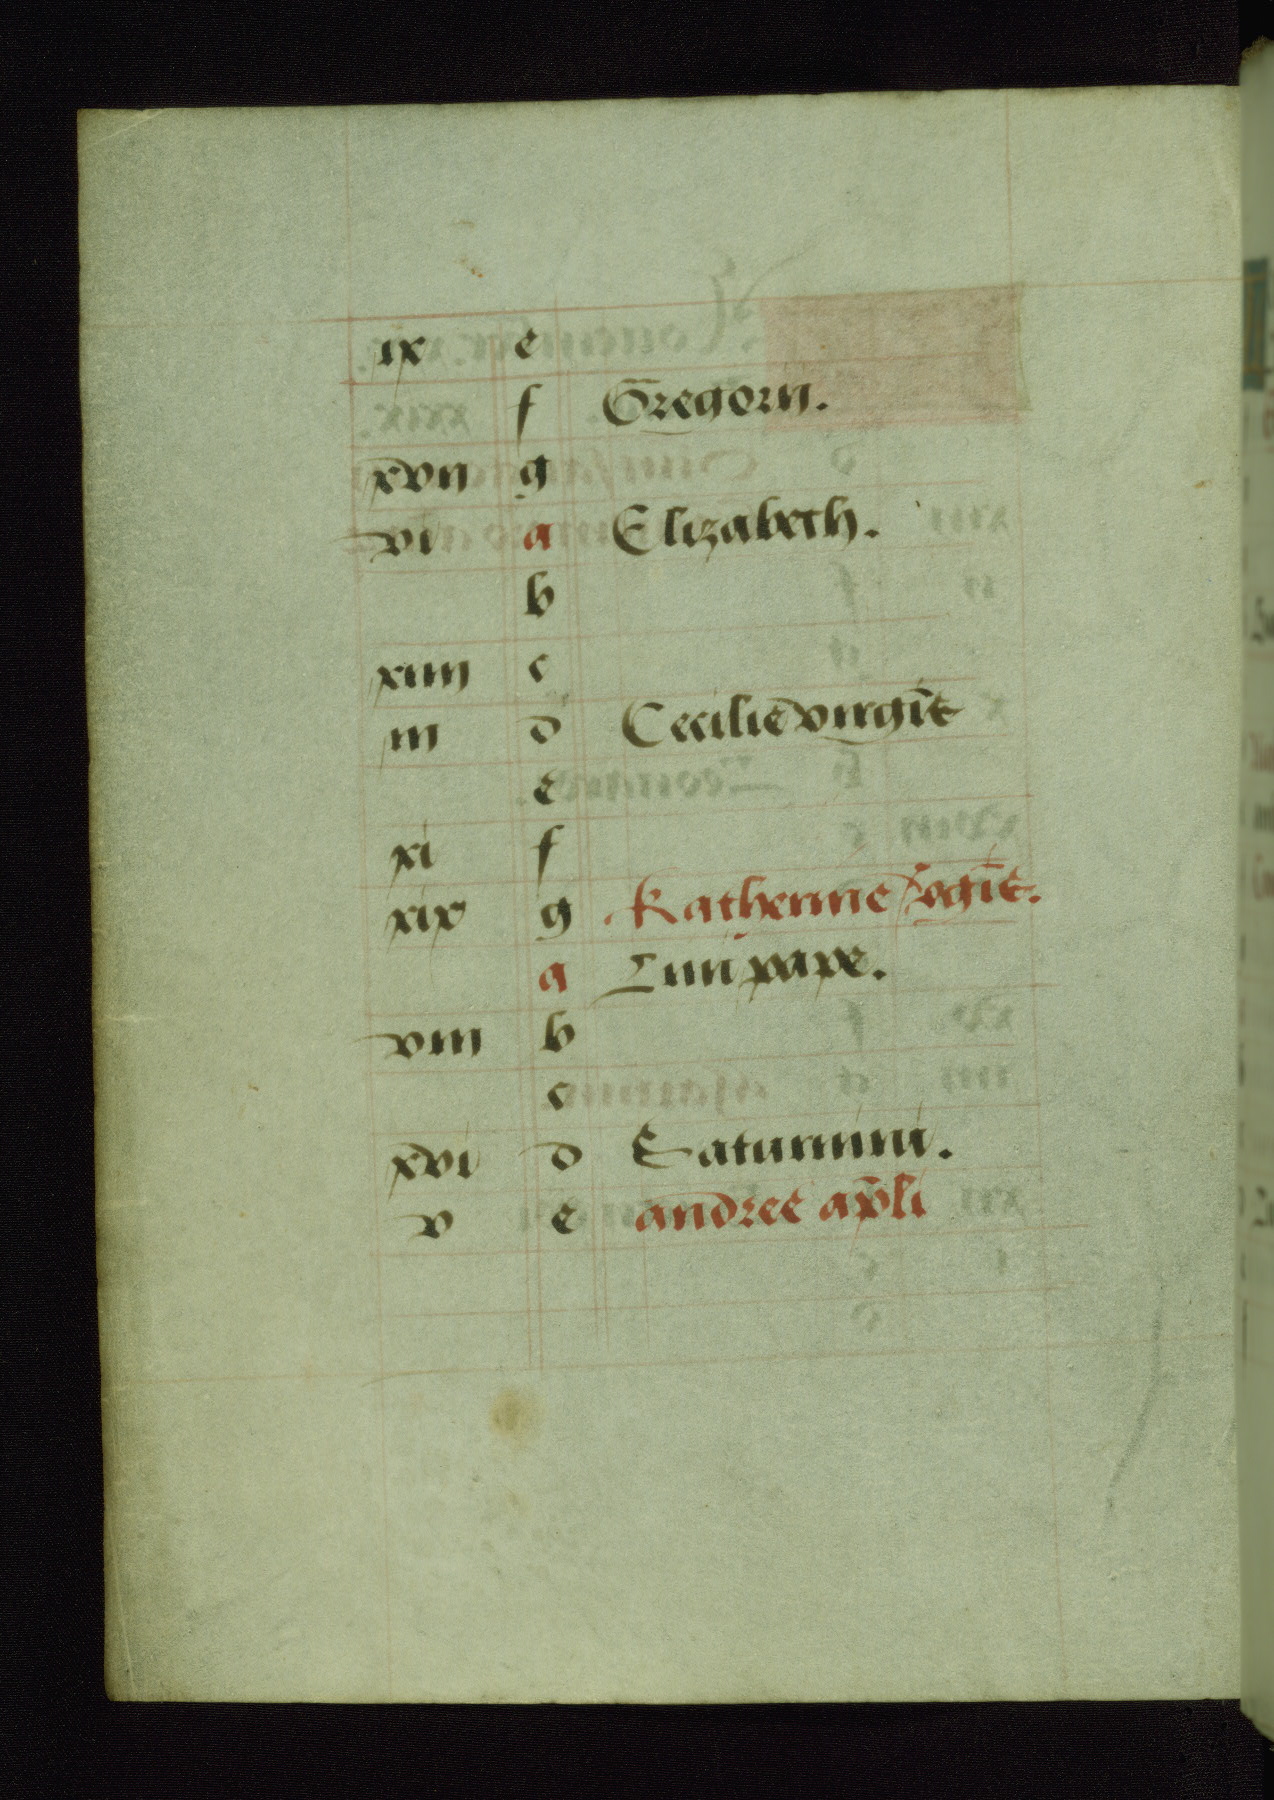 ix e
f Gregorii.
xvii g
vi a Elizabeth.
b
xiiii c
iii d Cecilie virgīs
e
xi f
xix g Katherine v̓gīs.
a Lini pape.
viii b
c
xvi d Saturnini.
v e andree apl̄i